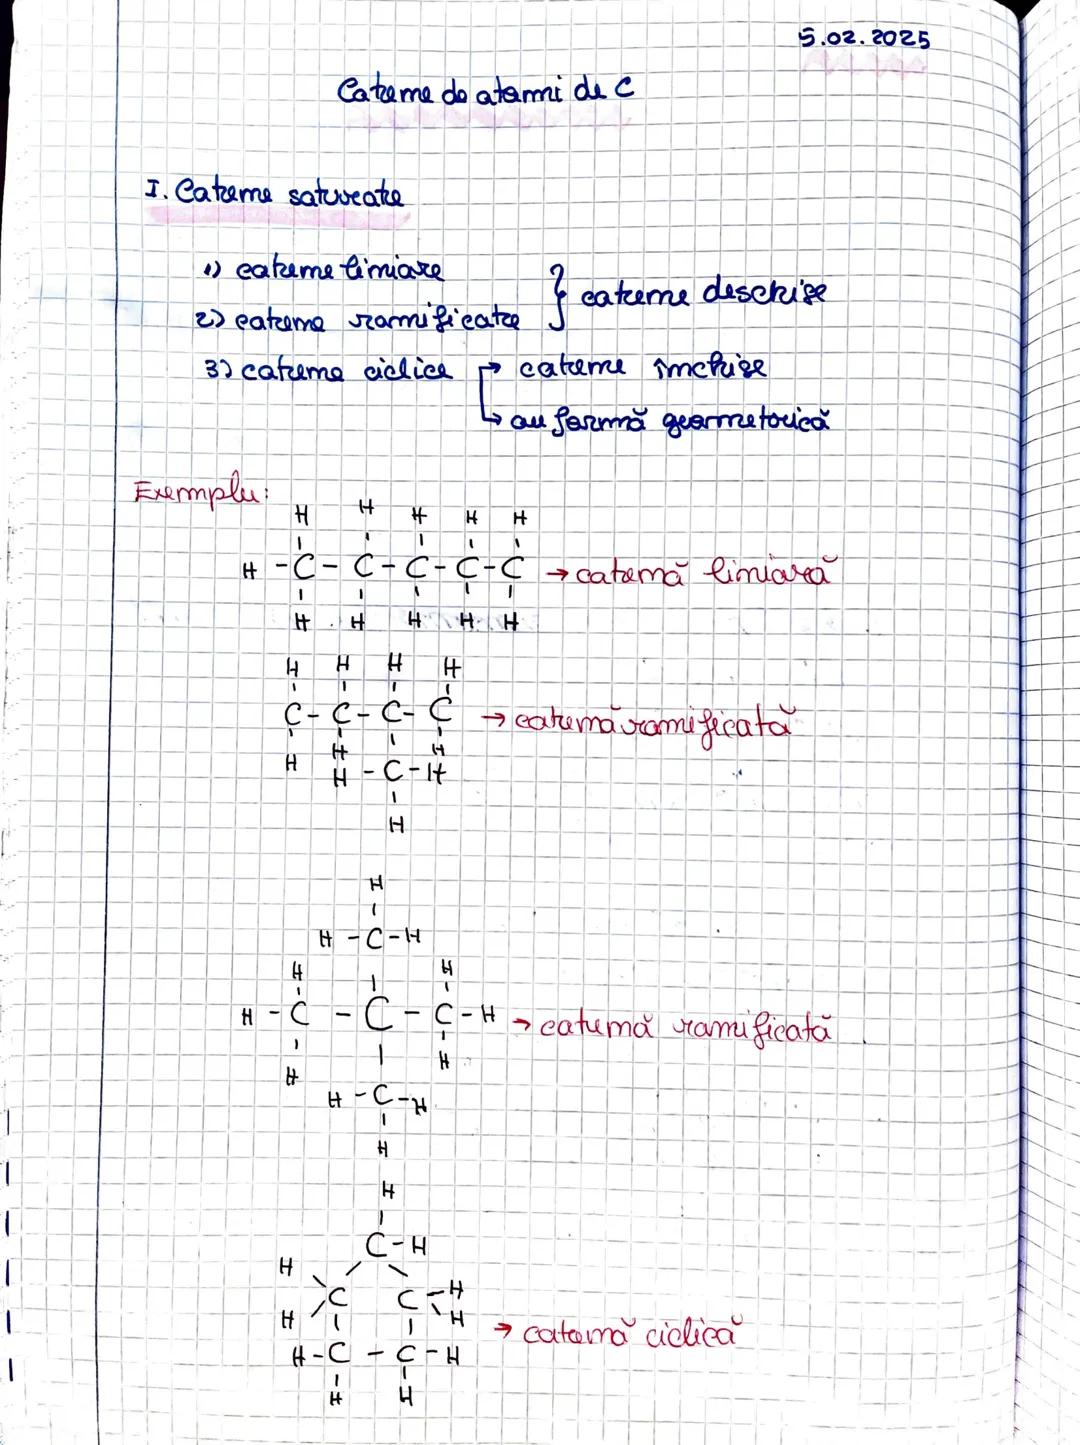 5.02.2025
Catene de atomi de C
I. Catene saturate
1) catene liniare } catene deschise
2) catene ramificate
3) catene ciclice → catene închise
↳ au formă geometrică
Exemplu:
H H H H H
H - C - C - C - C - C → catenă liniară
H H H H H
H H H H
C - C - C - C → catenă ramificată
H H
H
H - C - H
H
H
H - C - H
H H
H - C - C - C - H → catenă ramificată
H H
H - C - H
H
H
C - H
H
C C - H
H H → catenă ciclică
H - C - C - H
H H